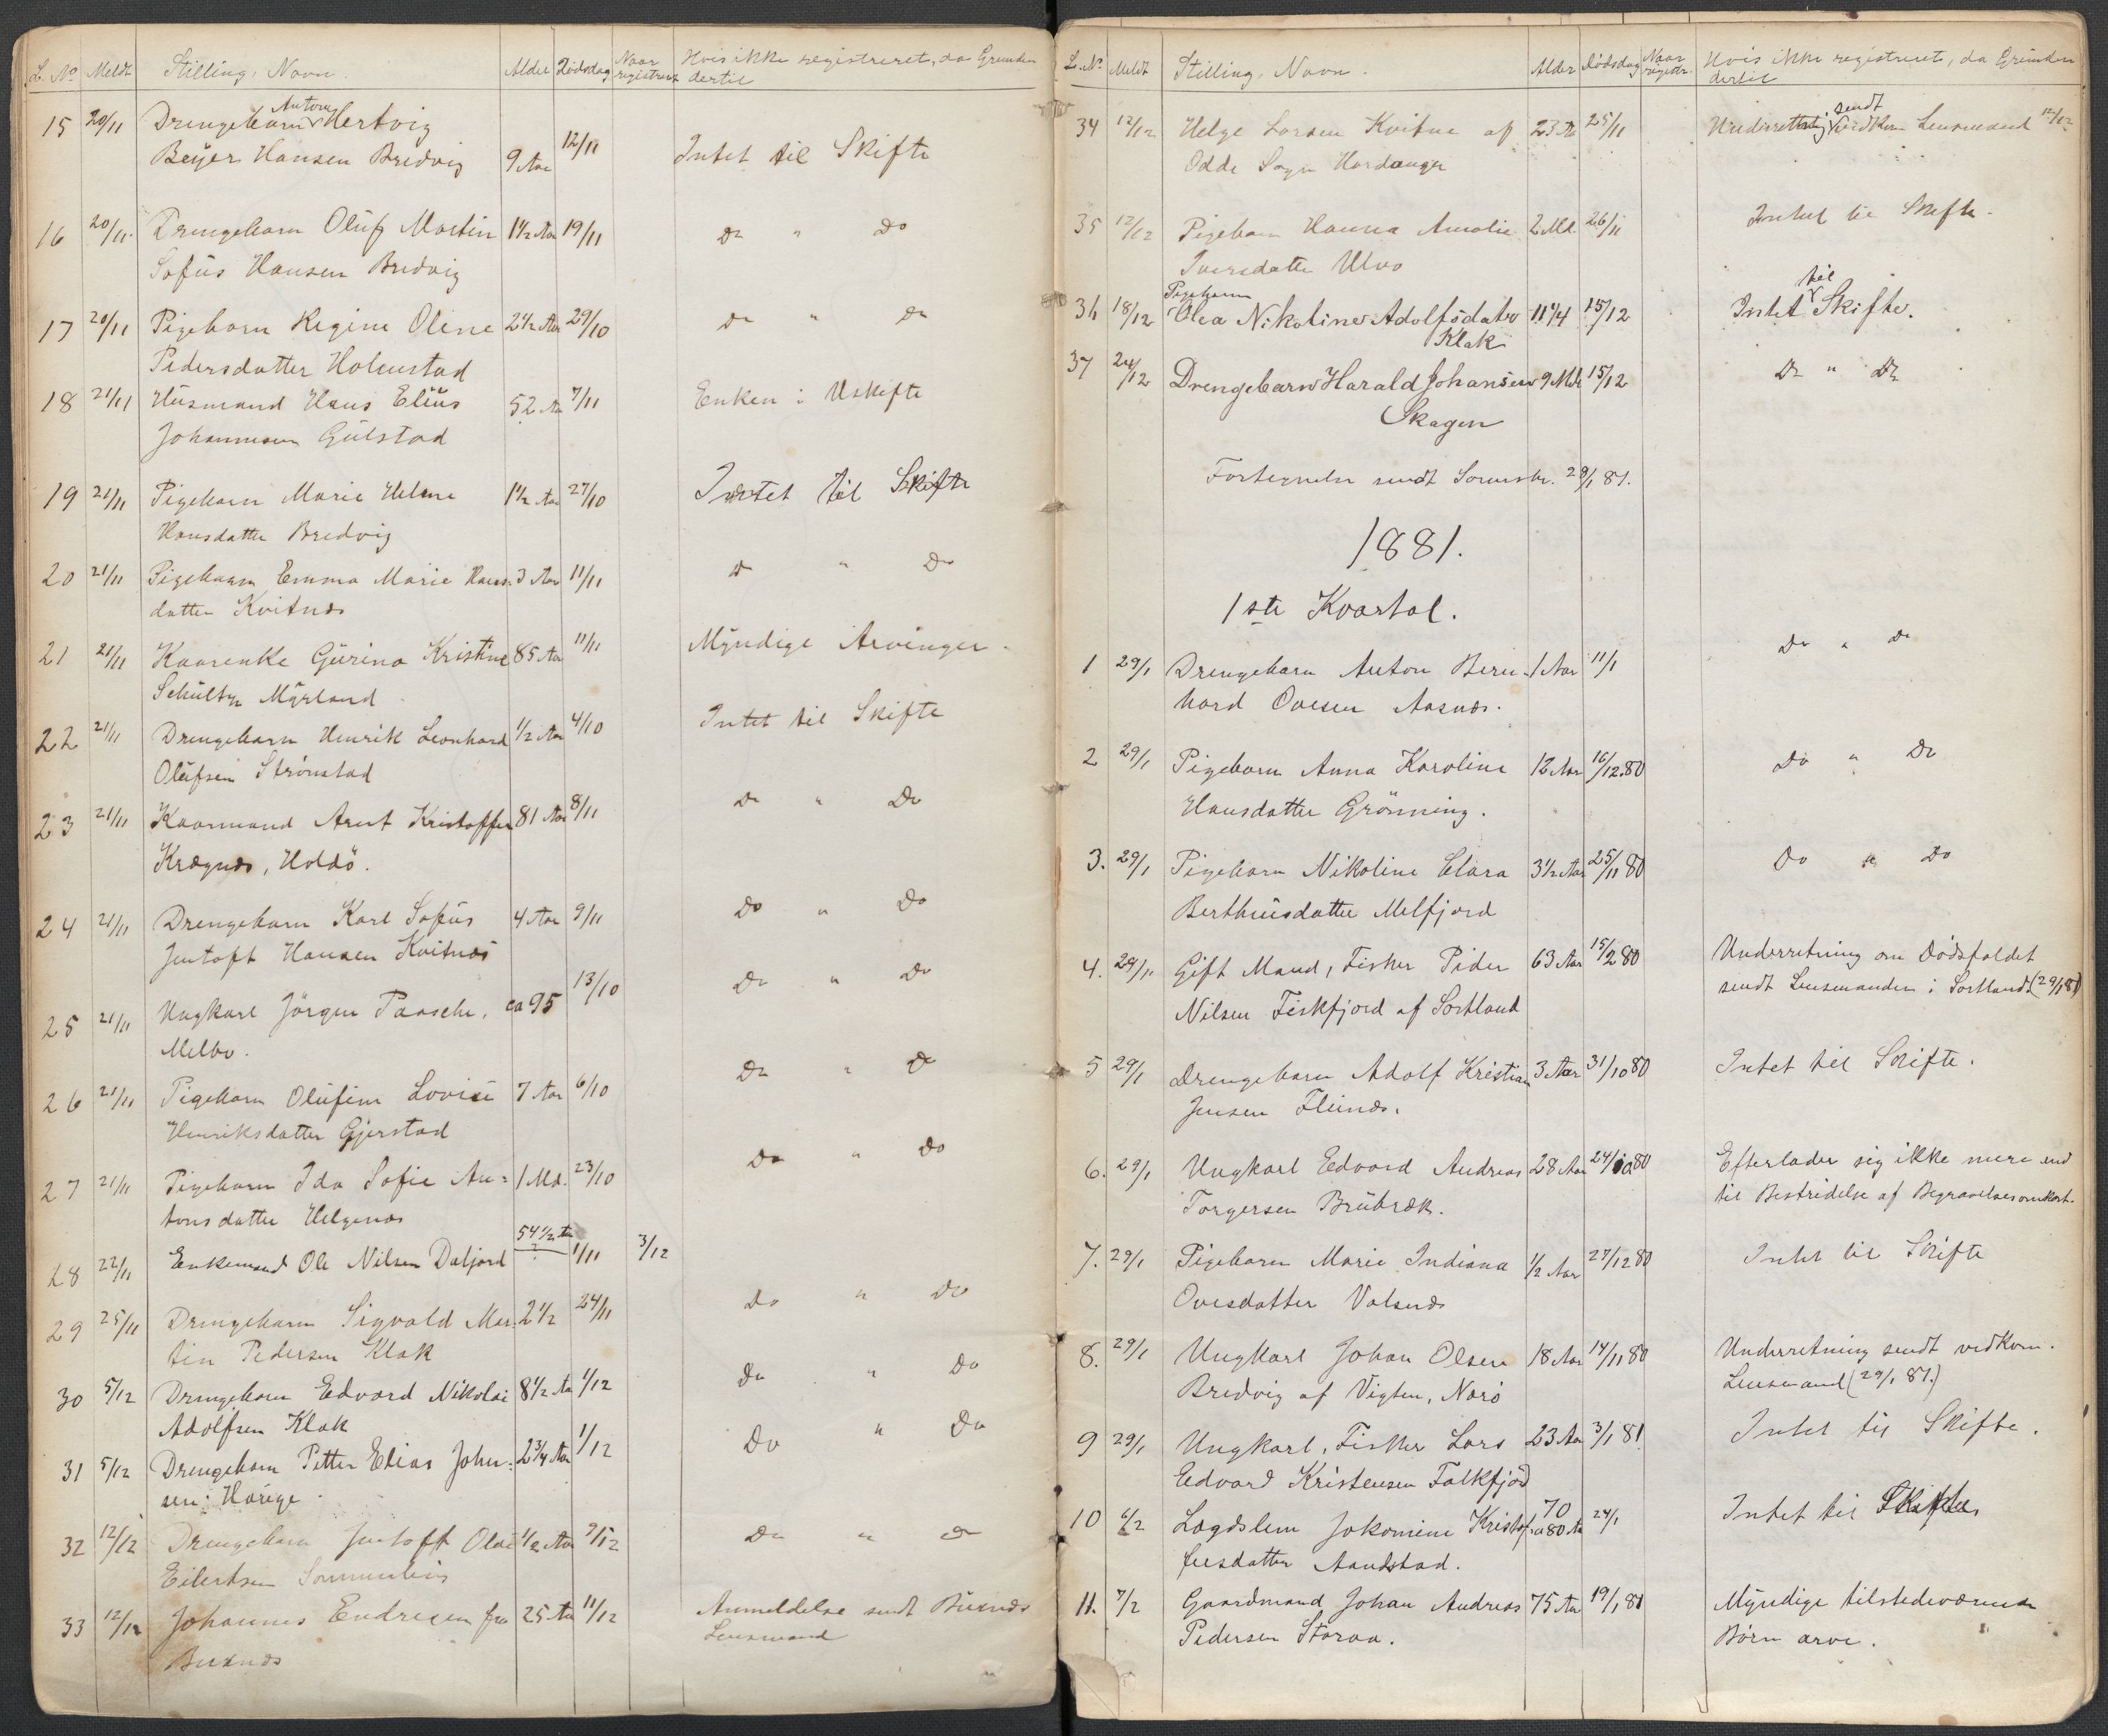 L. No Meldt Stilling, Navn. Alder Dödsdag Naar registreret Hvis ikke registreret, da Grunden dertil
15 20/11 Drengebarn Anton Hertvig
Beyer Hansen Bredvig 9 Aar 12/11 Intet til Skifte
16 20/11 Drengebarn Oluf Martin 1 1/2 Aar 19/11 Do " Do
Sofus Hansen Bredvig
17 20/11 Pigebarn Regine Oline 2 1/2 Aar 29/10 Do " Do
Pedersdatter Holmstad
18 21/11 Husmand Hans Elius 52 Aar 7/11 Enken i Uskifte
Johannesen Gulstad
19 21/11 Pigebarn Marie Helene 1 1/2 Aar 27/10 Intet til Skifte
Hansdatter Bredvig
20 21/11 Pigebarn Emma Marie Hans- 3 Aar 11/11 Do " Do
datter Kvitnæs
21 21/11 Kaarenke Gurina Kristine 85 Aar 11/11 Myndige Arvinger.
Schultz Myrland
22 21/11 Drengebarn Henrik Leonhard 1/2 Aar 4/10 Intet til Skifte
Olufsen Strönstad
23 21/11 Kaarmand Arnt Kristoffer 81 Aar 8/11 Do " Do
Krægnæs, Holdö.
24 21/11 Drengebarn Karl Sofus 4 Aar 9/11 Do " Do
Jentoft Hansen Kvitnæs
25 21/11 Ungkarl Jörgen Paasche, ca 95 13/10 Do " Do
Melbo.
26 21/11 Pigebarn Olufine Lovise 7 Aar 6/10 Do " Do
Henriksdatter Gjerstad
27 21/11 Pigebarn Ida Sofie An- 1 Md. 23/10 Do " Do
tonsdatter Helgenæs
28 22/11 Enkemand Ole Nilsen Dalfjord 54 1/2 Aar 1/11 3/12
29 25/11 Drengebarn Sigvald Mar- 2 1/2 24/11 Do " Do
tin Pedersen Klak
30 5/12 Drengebarn Edvard Nikolai 8 1/2 Aar 1/12 Do " Do
Adolfsen Klak
31 5/12 Drengebarn Petter Elias John- 2 3/4 Aar 1/12 Do " Do
sen: Hauge.
32 12/12 Drengebarn Jentoft Olai 1/2 Aar 9/12 Do " Do
Eilertsen
33 12/12 Johannes Endresen fra 25 Aar 11/12 Anmeldelse sendt Buxnæs
Buxnæs Lensmand
L. No Meldt Stilling, Navn. Alder Dödsdag Naar registr. Hvis ikke registreret, da Grunden dertil
34 12/12 Helge Larsen Kvitne af 23 Aar 25/11 Underretning sendt vedkom Lensmand 12/12
Odde Sogn Hardanger
35 12/12 Pigebarn Hanna Amalie 2 Md. 26/11 Intet til Skifte.
Iversdatter Ulvo
36 18/12 Pigebarn Olea Nikoline Adolfsdatr 11 1/4 15/12 Intet til Skifte.
Klak
37 24/12 Drengebarn Harald Johansen 9 Mdr 15/12 Do " Do
Skagen
Fortegnelse sendt Sorenskr. 28/1 81.
1881.
1ste Kvartal.
1 29/1 Drengebarn Anton Bern- 1 Aar 11/1 Do " Do
hard Ovesen Aasnæs.
2 29/1 Pigebarn Anna Karoline 12 Aar 16/12.80 Do " Do
Hansdatter Grönning.
3. 29/1 Pigebarn Nikoline Clara 3 1/2 Aar 25/11 80 Do " Do
Berthiusdatter Melfjord
4. 29/1 Gift Mand, Fisker Peder 63 Aar 15/2 80 Underretning om Dödsfaldet
Nilsen Fiskfjord af Sortland sendt Lensmanden i Sortland (29/1 81)
5 29/1 Drengebarn Adolf Kristian 3 Aar 31/10 80 Intet til Skifte.
Jensen Fleinæs.
6. 29/1 Ungkarl Edvard Andreas 28 Aar 24/10 80 Efterlader sig ikke mere end
Torgersen Brubræk. til Bestridelse af Begravelsesomkost.
7. 29/1 Pigebarn Marie Indiana 1/2 Aar 27/12 80 Intet til Skifte
Ovesdatter Valsnæs
8. 29/1 Ungkarl Johan Olsen 18 Aar 14/11 80 Underretning sendt vedkom.
Bredvig af Vigten, Narö Lensmand (29/1 81.)
9 29/1 Ungkarl, Fisker Lars 23 Aar 3/1 81 Intet til Skifte.
Edvard Kristensen Falkfjord
10 6/2 Lægdslem Jakomine Kristof- 70 a 80 Aar 24/1 Intet til Skifte
fersdatter Aandstad.
11. 7/2 Gaardmand Johan Andreas 75 Aar 19/1 81 Myndige tilstedeværende
Pedersen Storaa. Börn arve.